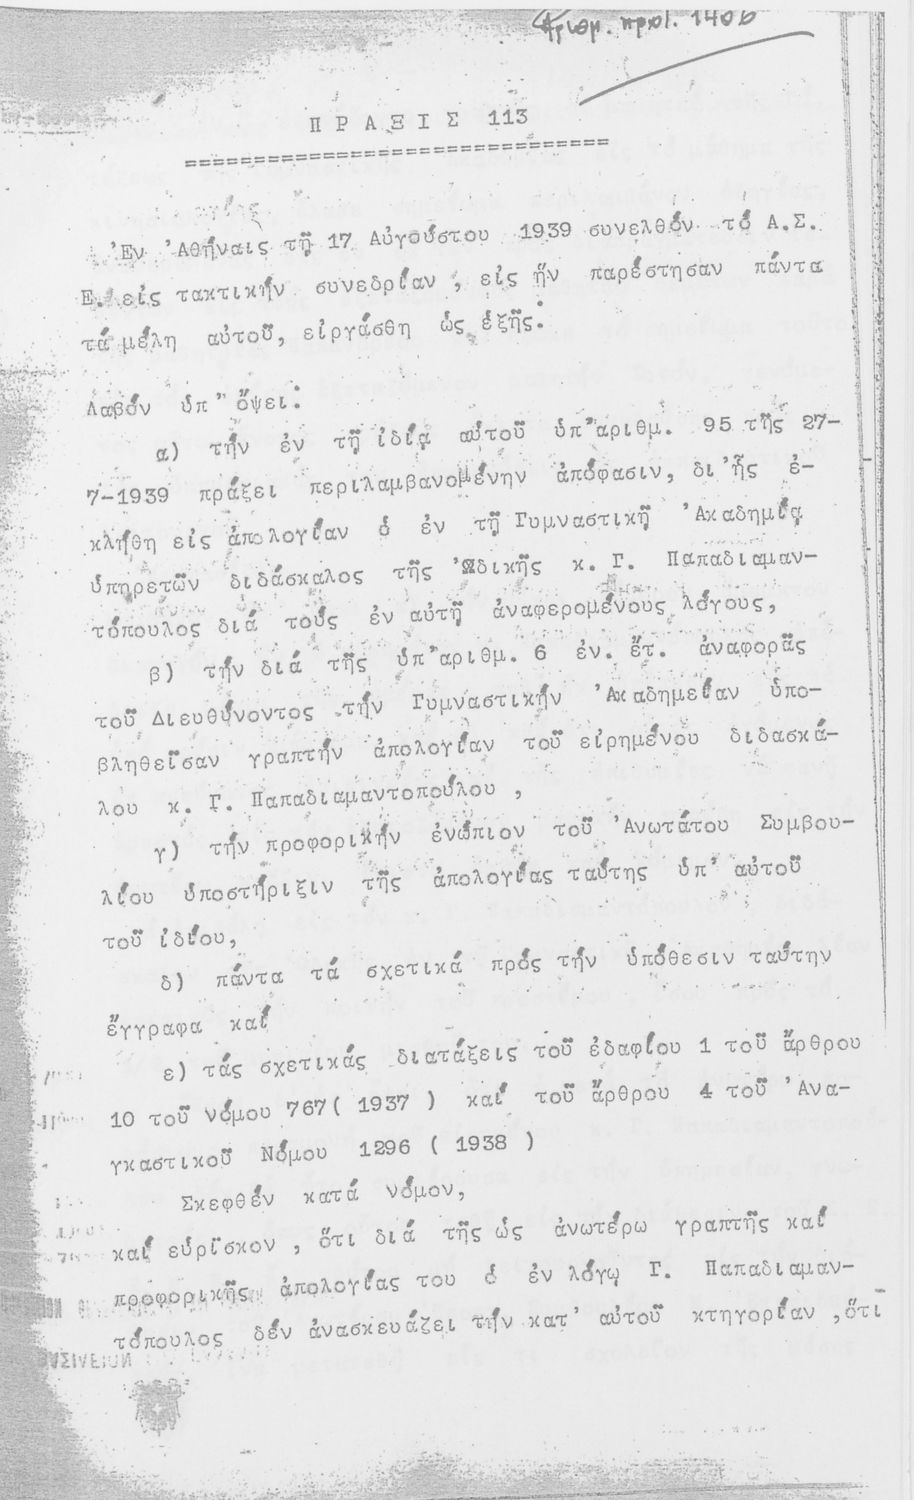 Ἀριθμ. πρωτ. 1406
Π Ρ Α Ξ Ι Σ 113
Ἐν Ἀθήναις τῇ 17 Αὐγούστου 1939 συνελθόν τό Α.Σ.
Ε. εἰς τακτικήν συνεδρίαν , εἰς ἥν παρέστησαν πάντα
τά μέλη αὐτοῦ, εἰργάσθη ὡς ἑξῆς:
Λαβόν ὑπ' ὄψει:
α) τήν ἐν τῇ ἰδίᾳ αὐτοῦ ὑπ'αριθμ. 95 τῆς 27-
7-1939 πράξει περιλαμβανομένην ἀπόφασιν, δι'ἧς ἐ-
κλήθη εἰς ἀπολογίαν ὁ ἐν τῇ Γυμναστικῇ Ἀκαδημίᾳ
ὑπηρετῶν διδάσκαλος τῆς Ὠδικῆς κ. Γ. Παπαδιαμαν-
τόπουλος διά τούς ἐν αὐτῇ ἀναφερομένους λόγους,
β) τήν διά τῆς ὑπ'αριθμ. 6 ἐν. ἔτ. ἀναφορᾶς
τοῦ Διευθύνοντος τήν Γυμναστικήν Ἀκαδημείαν ὑπο-
βληθεῖσαν γραπτήν ἀπολογίαν τοῦ εἰρημένου διδασκά-
λου κ. Γ. Παπαδιαμαντοπούλου ,
γ) τήν προφορικήν ἐνώπιον τοῦ Ἀνωτάτου Συμβου-
λίου ὑποστήριξιν τῆς ἀπολογίας ταύτης ὑπ' αὐτοῦ
τοῦ ἰδίου,
δ) πάντα τά σχετικά πρός τήν ὑπόθεσιν ταύτην
ἔγγραφα καί
ε) τάς σχετικάς διατάξεις τοῦ ἐδαφίου 1 τοῦ ἄρθρου
10 τοῦ νόμου 767( 1937 ) καί τοῦ ἄρθρου 4 τοῦ Ἀνα-
γκαστικοῦ Νόμου 1296 ( 1938 )
Σκεφθέν κατά νόμον,
καί εὑρῖσκον , ὅτι διά τῆς ὡς ἀνωτέρω γραπτῆς καί
προφορικῆς ἀπολογίας του ὁ ἐν λόγῳ Γ. Παπαδιαμαν-
τόπουλος δέν ἀνασκευάζει τήν κατ' αὐτοῦ κτηγορίαν ,ὅτι